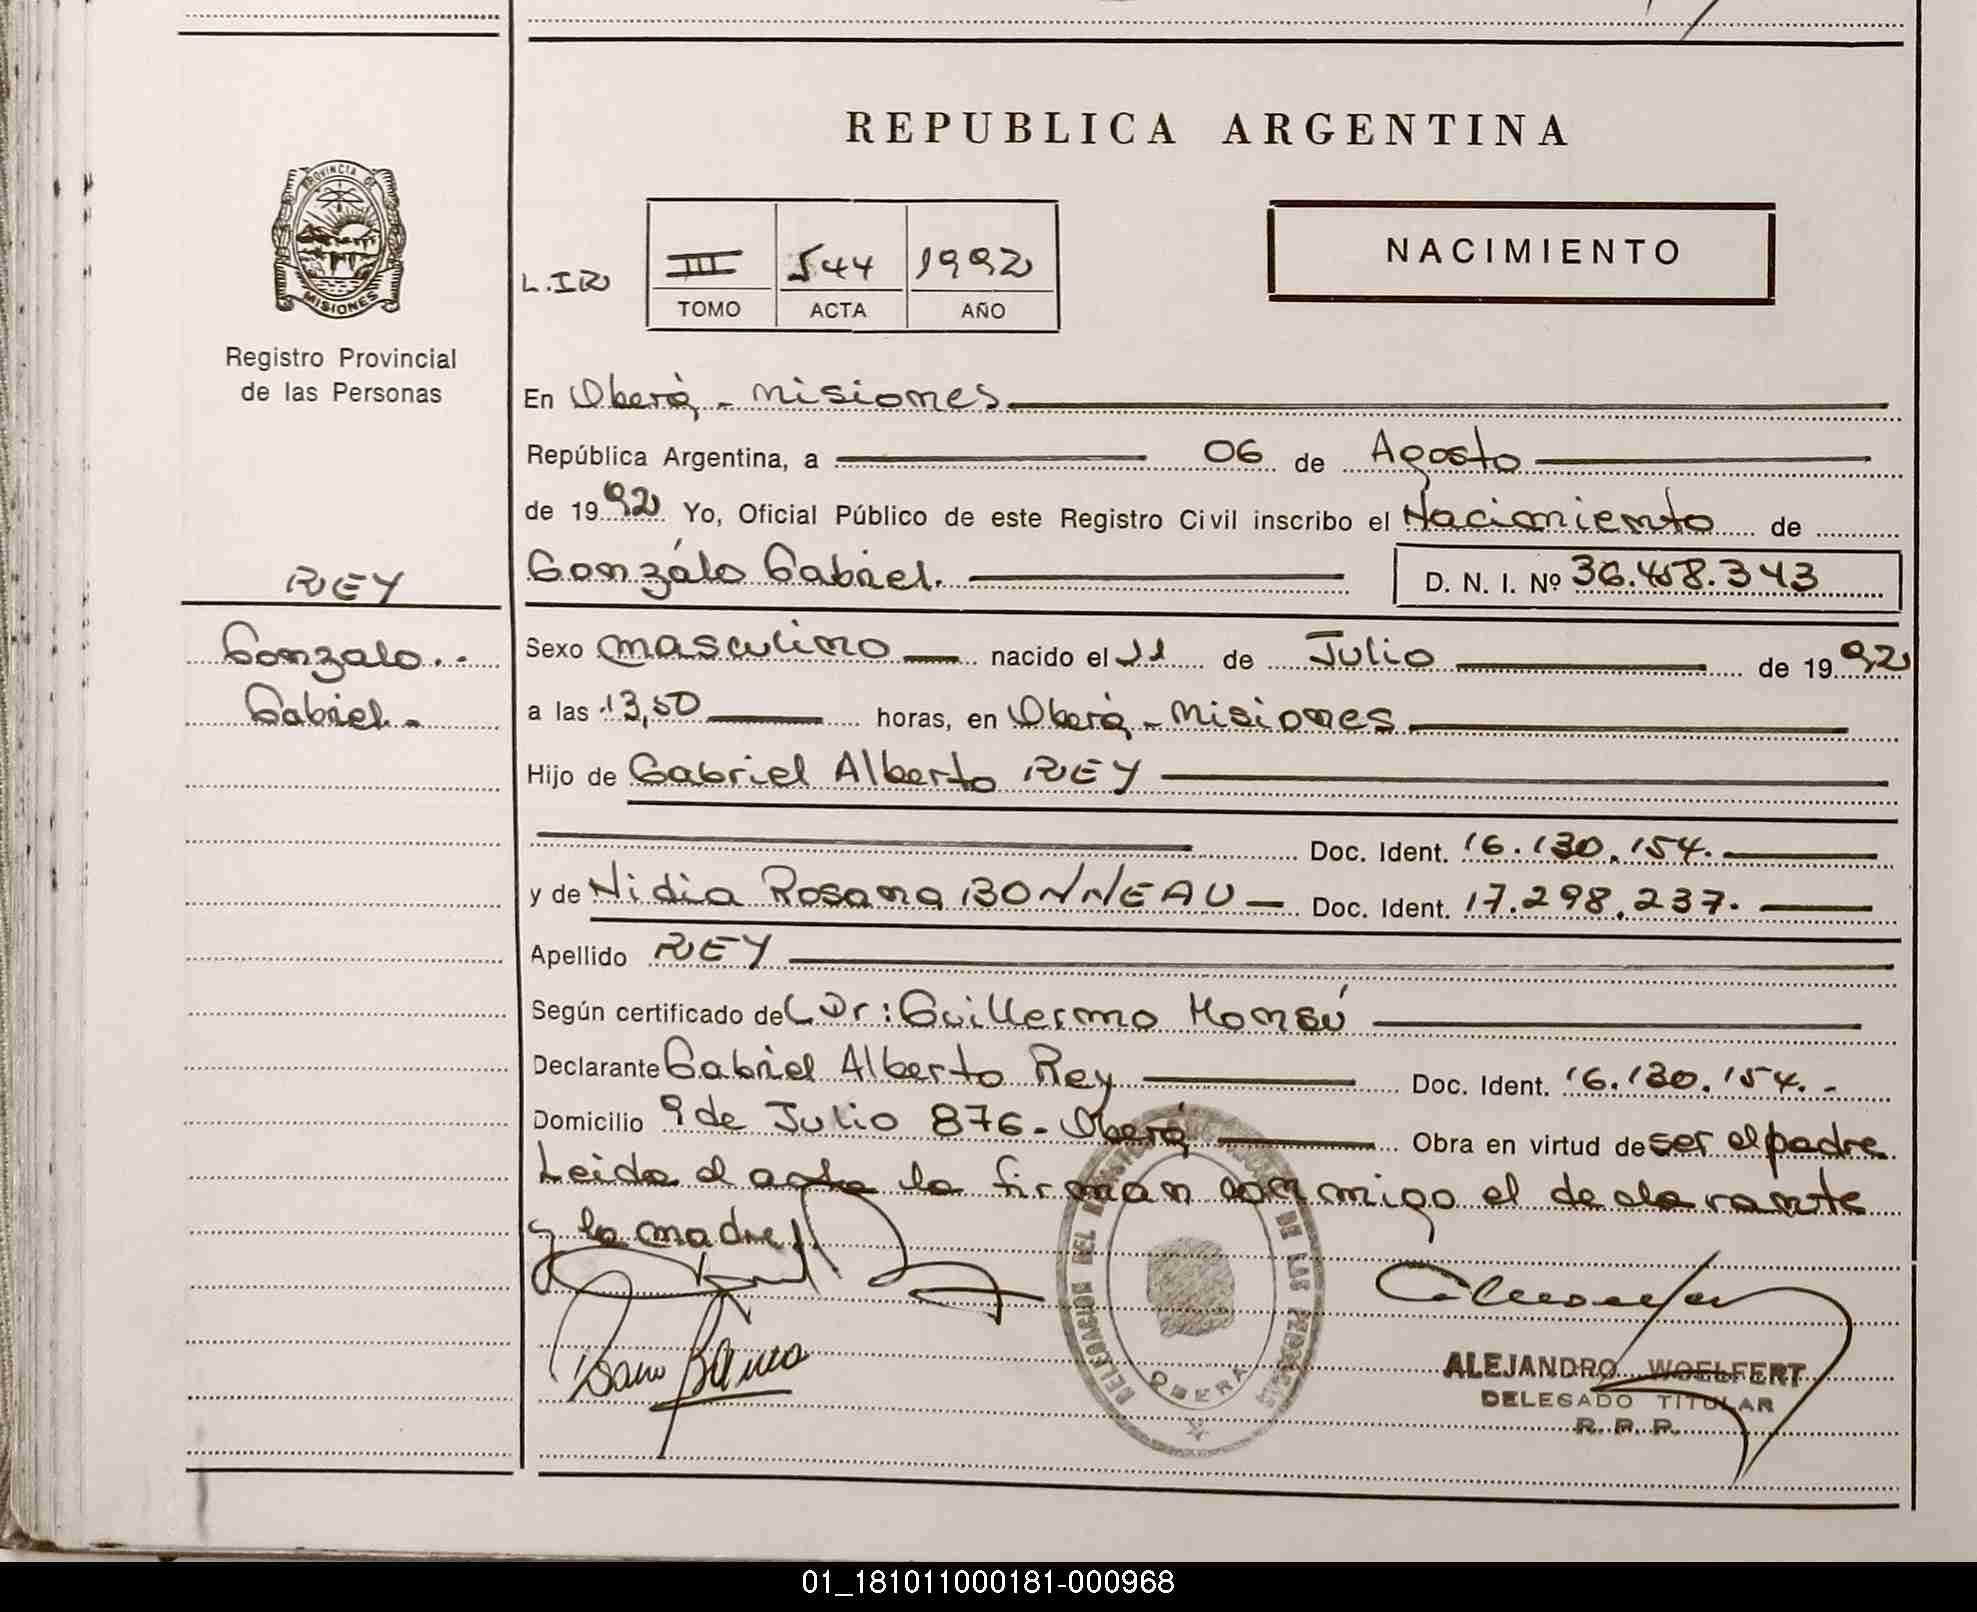 REPUBLICA ARGENTINA
PROVINCIA DE
MISIONES
Registro Provincial
de las Personas
III 544 1992
TOMO ACTA AÑO
NACIMIENTO
En Oberá - Misiones
República Argentina, a 06 de Agosto
de 1992 Yo, Oficial Público de este Registro Civil inscribo el Nacimiento de
Gonzálo Gabriel. D. N. I. Nº 36.458.343
REY
Gonzalo..
Gabriel.-
Sexo masculino nacido el 11 de Julio de 1992
a las 13,50 horas, en Oberá - Misiones
Hijo de Gabriel Alberto REY
Doc. Ident. 16.130.154.
y de Nidia Rosana BONNEAU Doc. Ident. 17.298.237.
Apellido REY
Según certificado del Dr: Guillermo Monsú
Declarante Gabriel Alberto Rey Doc. Ident. 16.130.154.-
Domicilio 9 de Julio 876 - Oberá Obra en virtud de ser el padre
Leida el acta la firman conmigo el declarante
y la madre
DELEGACION DEL REGISTRO PROVINCIAL DE LAS PERSONAS
OBERA
ALEJANDRO WOELFERT
DELEGADO TITULAR
R. P. P.
01_181011000181-000968